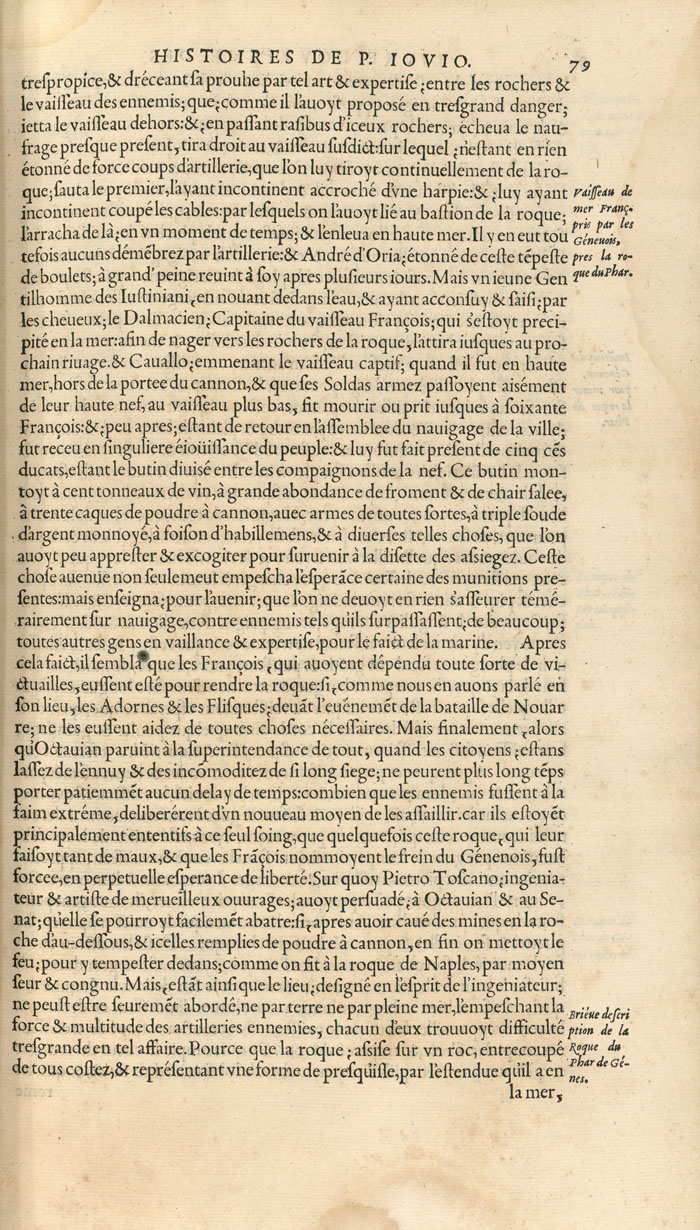 HISTOIRES DE P. IOVIO. 79
treſpropice,& dréceant ſa prouhe par tel art & expertiſe ¿entre les rochers &
le vaiſſeau des ennemis; que¿comme il l'auoyt propoſé en treſgrand danger;
ietta le vaiſſeau dehors:&¿en paſſant raſibus d'iceux rochers; écheua le nau-
frage preſque preſent, tira droit au vaiſſeau ſuſdict:ſur lequel ¿n'eſtant en rien
étonné de force coups d'artillerie,que l'on luy tiroyt continuellement de la ro-
que;ſauta le premier,l'ayant incontinent accroché d'vne harpie:&¿luy ayant
incontinent coupé les cables:par leſquels on l'auoyt lié au baſtion de la roque;
l'arracha de là¿en vn moment de temps;& l'enleua en haute mer.Il y en eut tou
tefois aucuns démēbrez par l'artillerie:& André d'Oria¿étonné de ceſte tēpeſte
de boulets;à grand' peine reuint à ſoy apres pluſieurs iours. Mais vn ieune Gen
tilhomme des Iuſtiniani¿en nouant dedans l'eau,& ayant acconſuy & ſaiſi;par
les cheueux;le Dalmacien¿Capitaine du vaiſſeau François;qui s'eſtoyt preci-
pité en la mer:afin de nager vers les rochers de la roque,l'attira iuſques au pro-
chain riuage.& Cauallo¿emmenant le vaiſſeau captif; quand il fut en haute
mer,hors de la portee du cannon,& que ſes Soldas armez paſſoyent aisément
de leur haute nef, au vaiſſeau plus bas, fit mourir ou prit iuſques à ſoixante
François:&¿peu apres;eſtant de retour en l'aſſemblee du nauigage de la ville;
fut receu en ſinguliere éioüiſſance du peuple:& luy fut fait preſent de cinq cēs
ducats,eſtant le butin diuisé entre les compaignons de la nef. Ce butin mon-
toyt à cent tonneaux de vin,à grande abondance de froment & de chair ſalee,
à trente caques de poudre à cannon,auec armes de toutes ſortes,à triple ſoude
d'argent monnoyé,à foiſon d'habillemens,& à diuerſes telles choſes, que l'on
auoyt peu appreſter & excogiter pour ſuruenir à la diſette des aſsiegez. Ceſte
choſe auenue non ſeulemeut empeſcha l'eſperāce certaine des munitions pre-
ſentes:mais enſeigna¿pour l'auenir;que l'on ne deuoyt en rien s'aſſeurer témé-
rairement ſur nauigage,contre ennemis tels qu'ils ſurpaſſaſſent¿de beaucoup;
toutes autres gens en vaillance & expertiſe,pour le faict de la marine. Apres
cela faict,il ſembla que les François ¿qui auoyent dépendu toute ſorte de vi-
ctuailles, euſſent eſté pour rendre la roque:ſi¿comme nous en auons parlé en
ſon lieu¿les Adornes & les Fliſques¿deuāt l'euénemēt de la bataille de Nouar
re; ne les euſſent aidez de toutes choſes néceſſaires. Mais finalement ¿alors
qu'Octauian paruint à la ſuperintendance de tout, quand les citoyens ¿eſtans
laſſez de l'ennuy & des incōmoditez de ſi long ſiege; ne peurent plus long tēps
porter patiemmēt aucun delay de temps:combien que les ennemis fuſſent à la
faim extréme, deliberérent d'vn nouueau moyen de les aſſaillir.car ils eſtoyēt
principalement ententifs à ce ſeul ſoing, que quelquefois ceſte roque¿qui leur
faiſoyt tant de maux,& que les Frāçois nommoyent le frein du Génenois, fuſt
forcee,en perpetuelle eſperance de liberté.Sur quoy Pietro Toſcano¿ingenia-
teur & artiſte de merueilleux ouurages;auoyt perſuadé¿à Octauian & au Se-
nat;qu'elle ſe pourroyt facilemēt abatre:ſi¿apres auoir caué des mines en la ro-
che d'au-deſſous,& icelles remplies de poudre à cannon, en fin on mettoyt le
feu;pour y tempeſter dedans;comme on fit à la roque de Naples, par moyen
ſeur & congnu. Mais¿eſtāt ainſi que le lieu¿deſigné en l'eſprit de l'ingeniateur;
ne peuſt eſtre ſeuremēt abordé,ne par terre ne par pleine mer,l'empeſchant la
force & multitude des artilleries ennemies, chacun d'eux trouuoyt difficulté
treſgrande en tel affaire. Pource que la roque ¿aſsiſe ſur vn roc, entrecoupé
de tous coſtez,& repréſentant vne forme de preſqu'iſle,par l'eſtendue qu'il a en
la mer,
Vaiſſeau de
mer Franç.
pris par les
Géneuois,
pres la ro-
que du Phar.
Briéue deſcri
ption de la
Roque du
Phar de Gé-
nes.